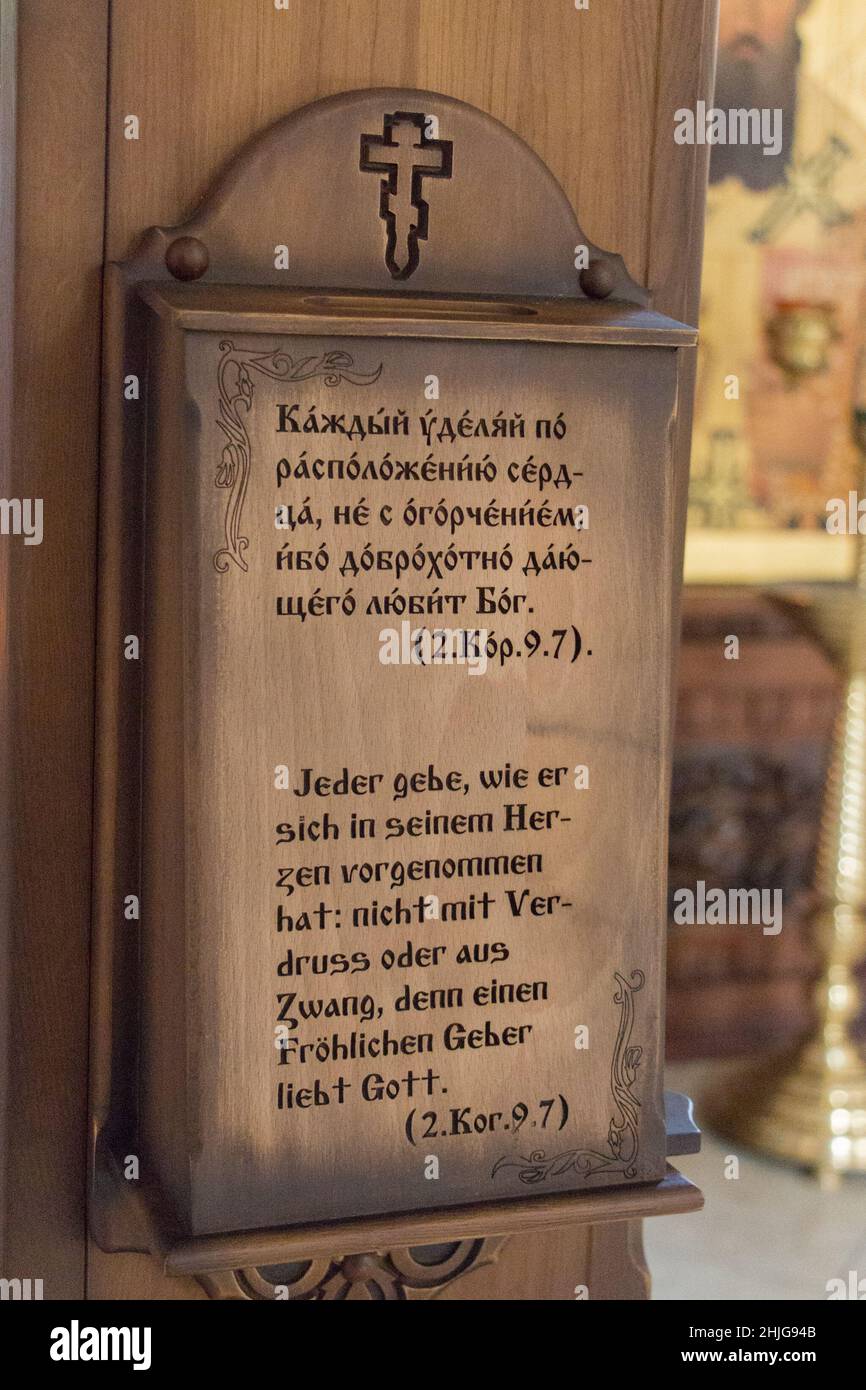 Ка́жды́й у́де́ля́й по́
ра́спо́ло́же́ни́ю́ се́рд-
ца́, не́ с о́го́рче́ни́е́м;
и́бо́ до́бро́хо́тно́ да́ю́-
ще́го́ лю́би́т Бо́г.
(2.Ко́р.9.7).
Jeder gebe, wie er
sich in seinem Her-
zen vorgenommen
hat: nicht mit Ver-
druss oder aus
Zwang, denn einen
Fröhlichen Geber
liebt Gott.
(2.Kor.9.7)
alamy
Image ID: 2HJG94B
www.alamy.com